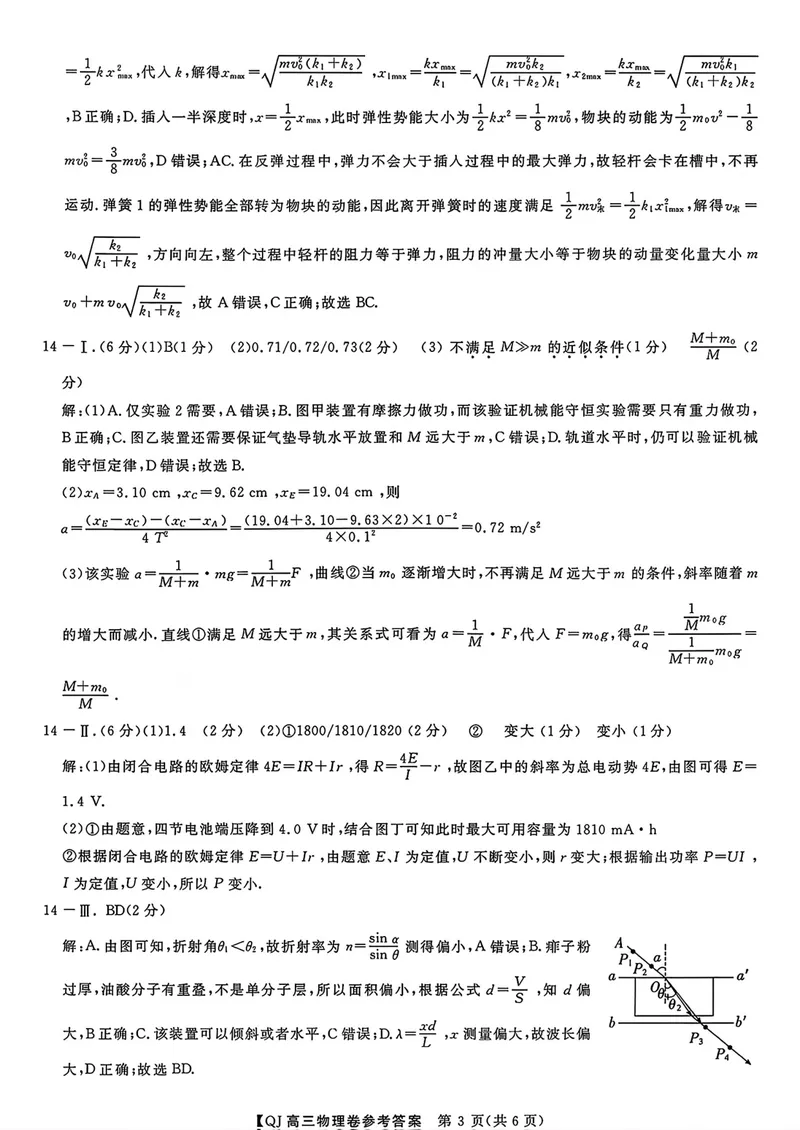 =1/2 kx²max,代入k,解得xmax=√(mv₀²(k₁+k₂)/k₁k₂),x1max=kxmax/k₁=√(mv₀²k₂/(k₁+k₂)k₁),x2max=kxmax/k₂=√(mv₀²k₁/(k₁+k₂)k₂)
,B正确;D.插入一半深度时,x=1/2 xmax,此时弹性势能大小为1/2 kx²=1/8 mv₀²,物块的动能为1/2 m₀v²-1/8
mv₀²=3/8 mv₀²,D错误;AC.在反弹过程中,弹力不会大于插入过程中的最大弹力,故轻杆会卡在槽中,不再
运动.弹簧1的弹性势能全部转为物块的动能,因此离开弹簧时的速度满足 1/2 mv末²=1/2 k₁x²1max,解得v末=
v₀√(k₂/(k₁+k₂)),方向向左,整个过程中轻杆的阻力等于弹力,阻力的冲量大小等于物块的动量变化量大小 m
v₀+mv₀√(k₂/(k₁+k₂)),故A错误,C正确;故选BC.
14-Ⅰ.(6分)(1)B(1分) (2)0.71/0.72/0.73(2分) (3) 不满足 M≫m 的近似条件(1分) (M+m₀)/M (2
分)
解:(1)A.仅实验2需要,A错误;B.图甲装置有摩擦力做功,而该验证机械能守恒实验需要只有重力做功,
B正确;C.图乙装置还需要保证气垫导轨水平放置和M远大于m,C错误;D.轨道水平时,仍可以验证机械
能守恒定律,D错误;故选B.
(2)xA=3.10 cm ,xC=9.62 cm ,xE=19.04 cm ,则
a=((xE-xC)-(xC-xA))/4T²=((19.04+3.10-9.63×2)×10⁻²)/(4×0.1²)=0.72 m/s²
(3)该实验 a=1/(M+m)·mg=1/(M+m)F ,曲线②当 m₀ 逐渐增大时,不再满足M远大于m 的条件,斜率随着m
的增大而减小.直线①满足M远大于m,其关系式可看为 a=1/M·F,代入 F=m₀g,得aP/aQ=(1/M m₀g)/(1/(M+m₀) m₀g)=
(M+m₀)/M.
14-Ⅱ.(6分)(1)1.4 (2分) (2)①1800/1810/1820 (2分) ② 变大 (1分) 变小 (1分)
解:(1)由闭合电路的欧姆定律 4E=IR+Ir ,得 R=4E/I-r ,故图乙中的斜率为总电动势 4E,由图可得 E=
1.4 V.
(2)①由题意,四节电池端压降到4.0 V时,结合图丁可知此时最大可用容量为1810 mA·h
②根据闭合电路的欧姆定律 E=U+Ir ,由题意E、I 为定值,U 不断变小,则 r 变大;根据输出功率 P=UI ,
I 为定值,U 变小,所以 P 变小.
14-Ⅲ. BD(2分)
解:A.由图可知,折射角θ₁<θ₂,故折射率为 n=sin α/sin θ 测得偏小,A错误;B.痱子粉
过厚,油酸分子有重叠,不是单分子层,所以面积偏小,根据公式 d=V/S ,知 d 偏
大,B正确;C.该装置可以倾斜或者水平,C错误;D.λ=xd/L ,x 测量偏大,故波长偏
大,D正确;故选BD.
A
P₁
P₂
a
a
a′
O
θ₁
θ₂
b
b′
P₃
P₄
【QJ高三物理卷参考答案 第3页(共6页)】